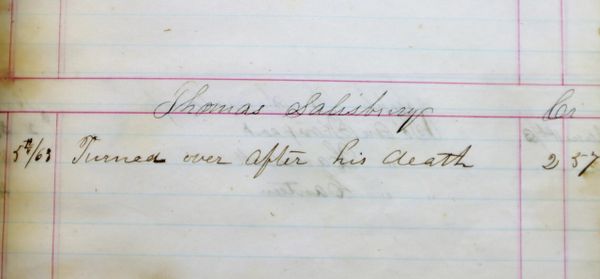 Thomas Salisbury Cr
5th/63 Turned over after his death 2 57